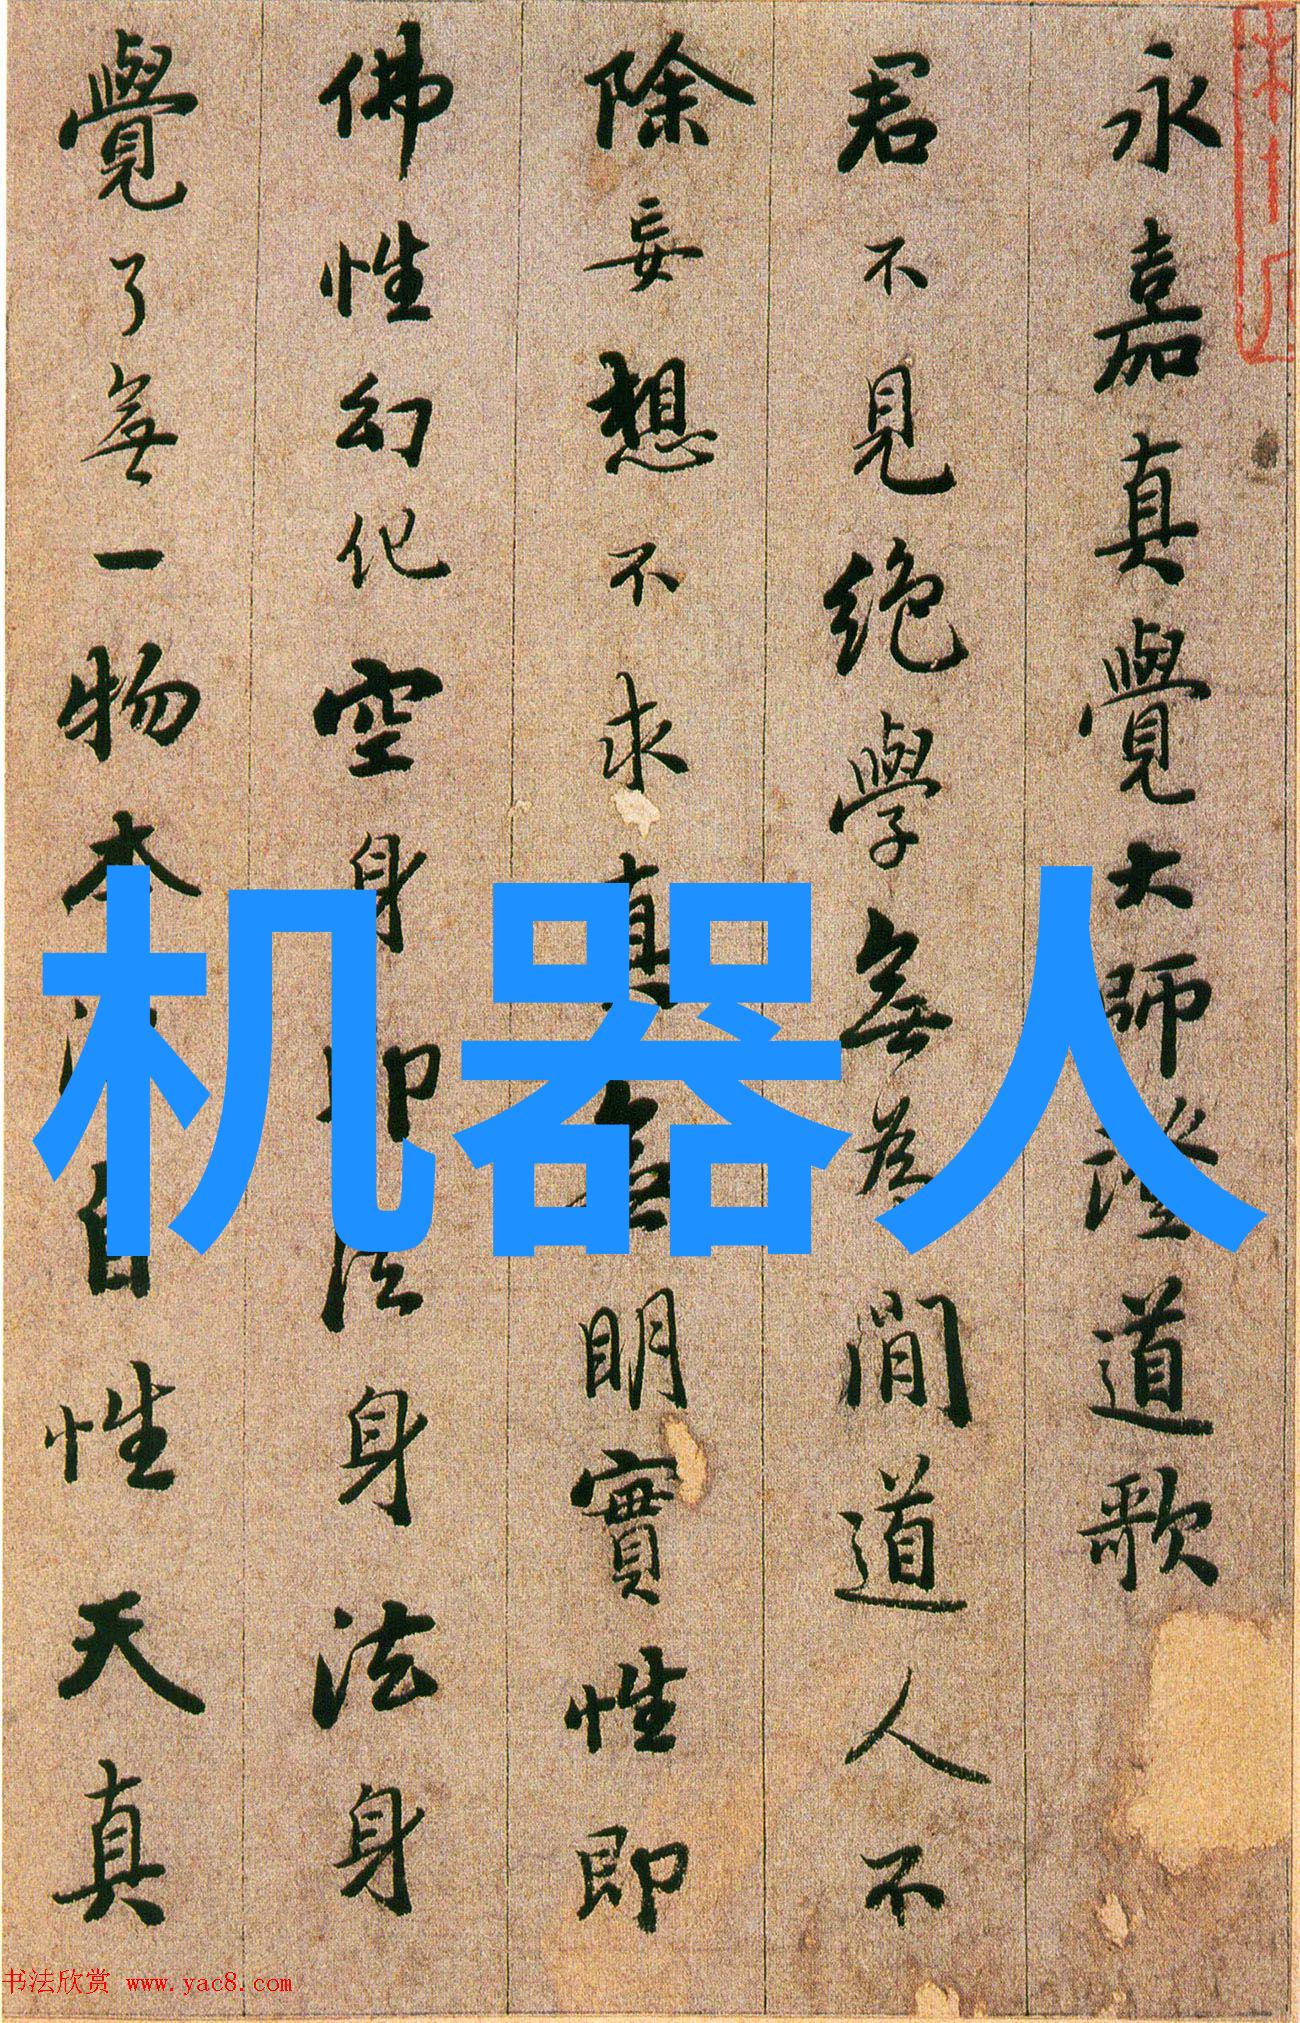 永嘉真覺大師證道歌
君不見絕學無為閒道人不
除妄想不求真無明實性即
佛性幻化空身即法身法身
覺了無一物本源自性天真
机器人
书法欣赏 www.yac8.com